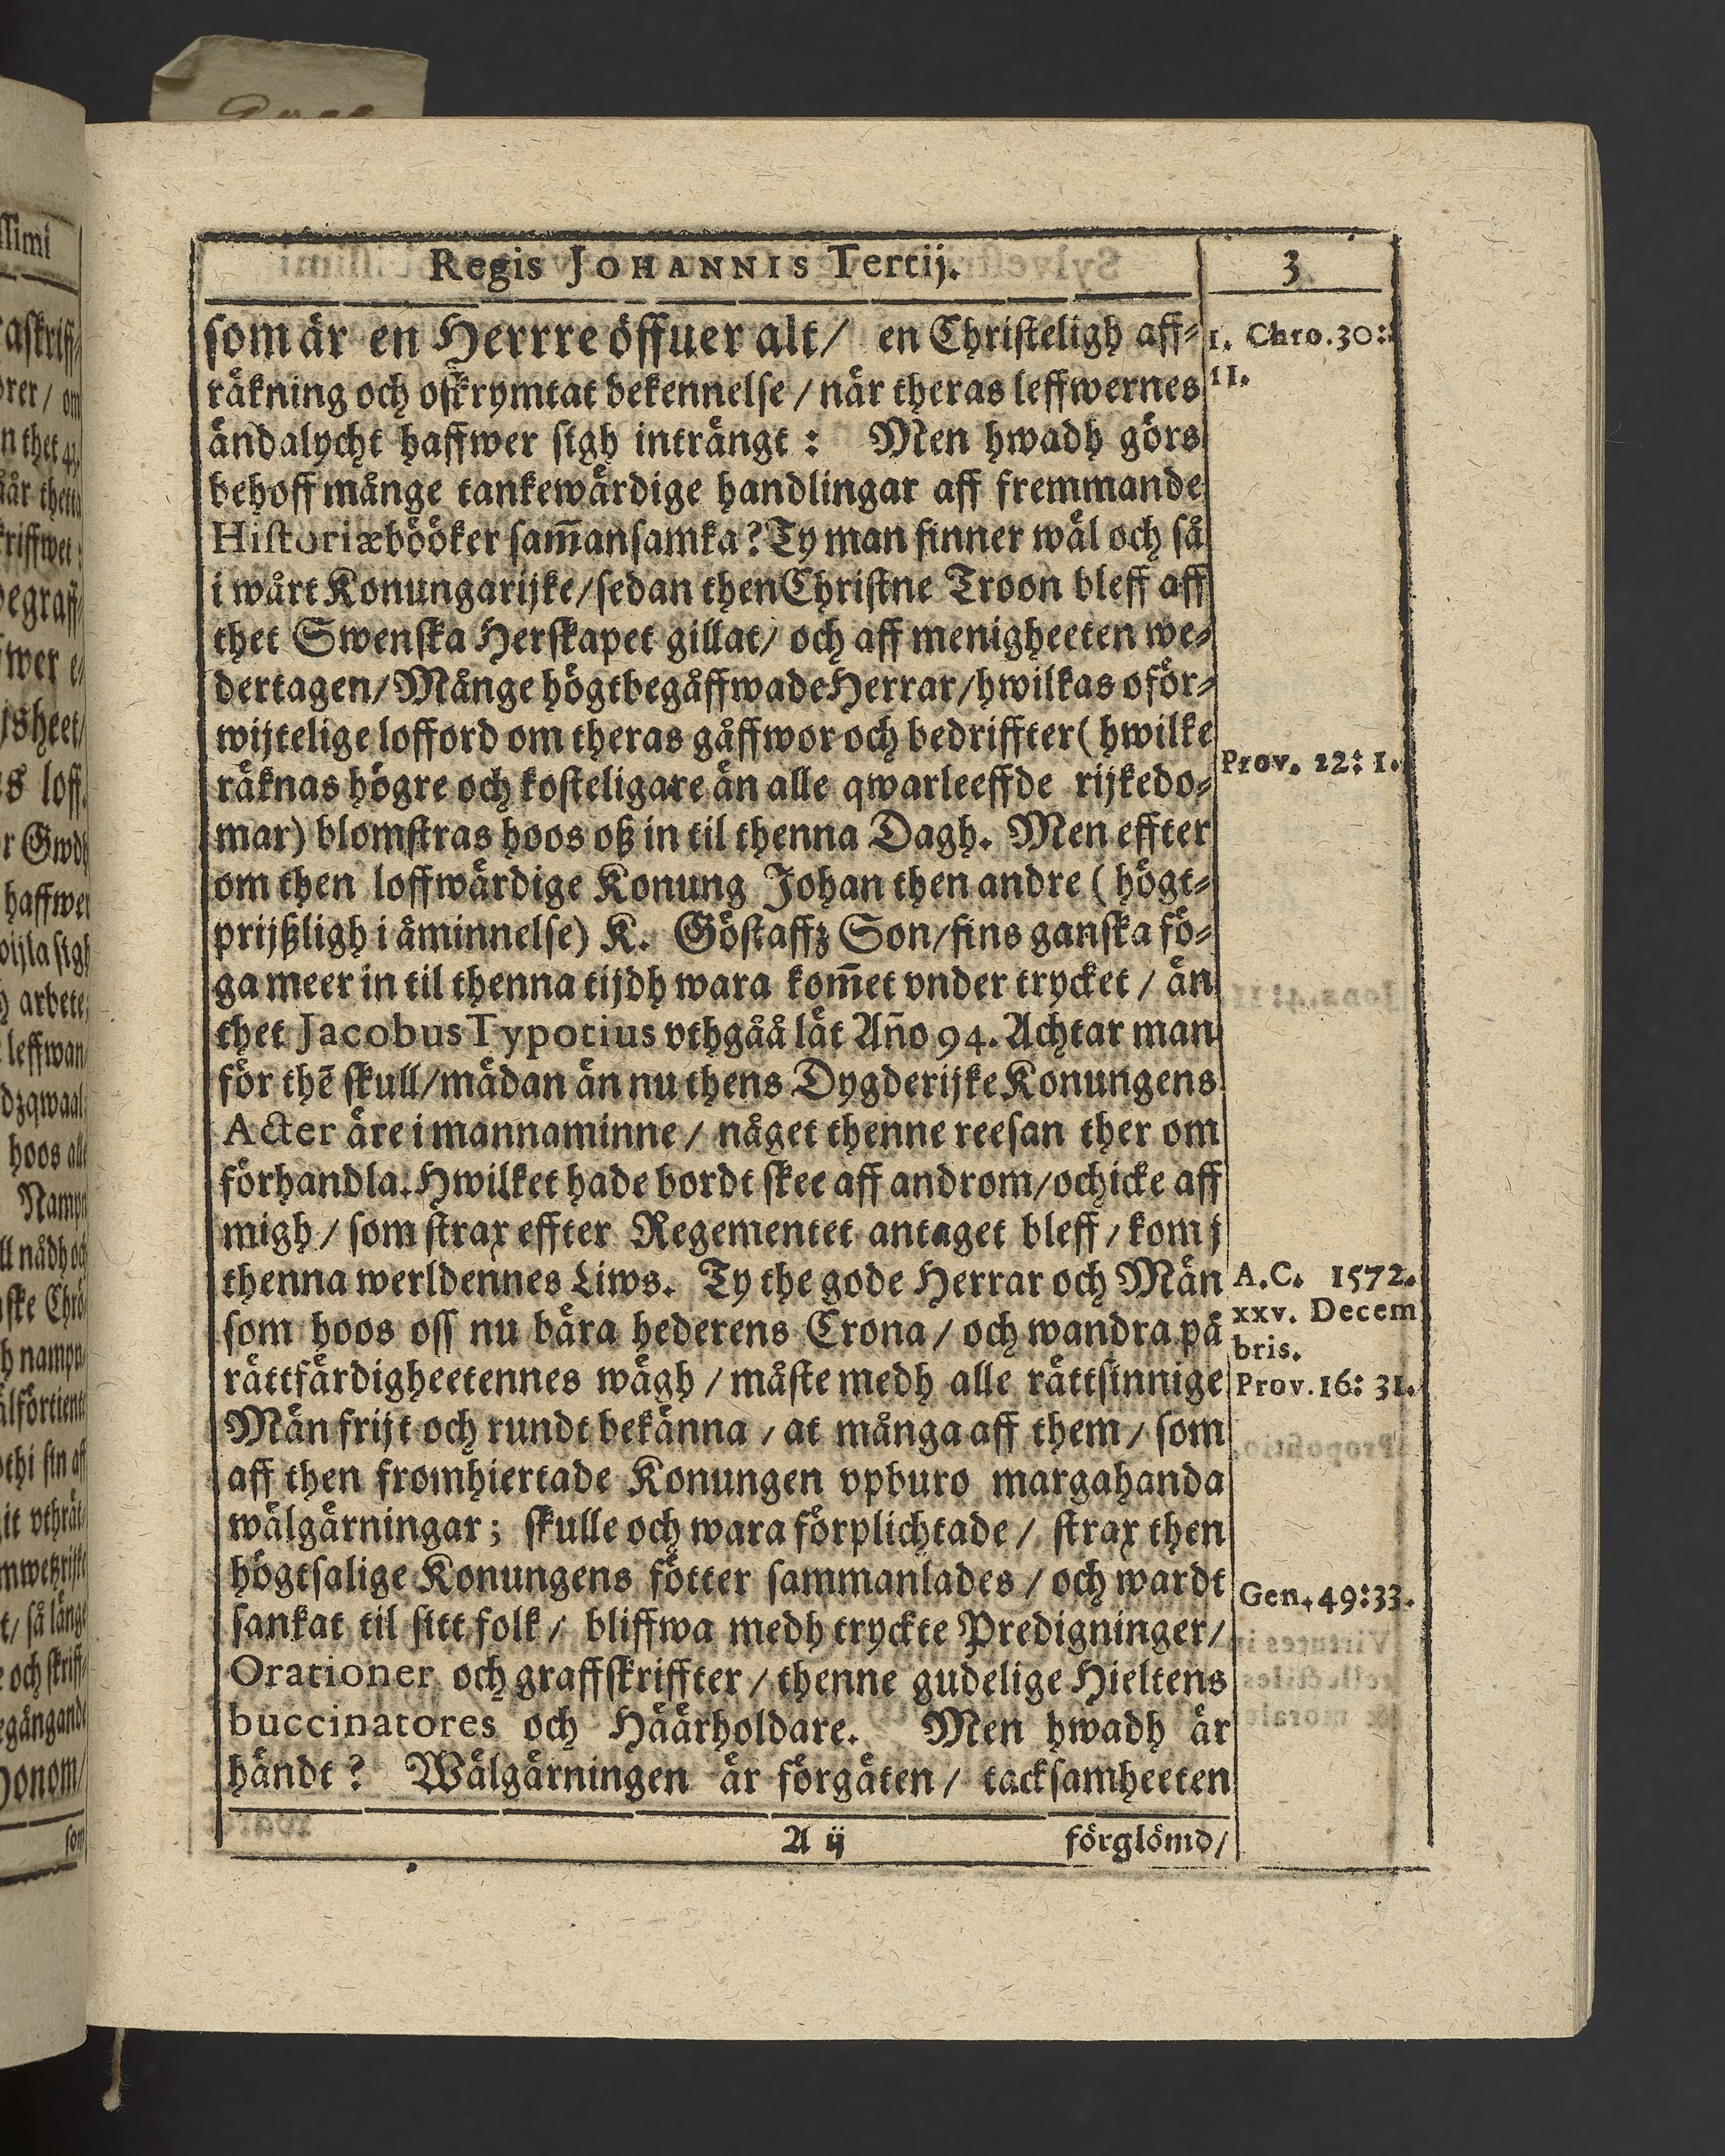 Regis JOHANNIS Tertij. 3
som är en Herrre öffuer alt/ en Christeligh aff-
räkning och oskrymtat bekennelse / när theras leffwernes
ändalycht haffwer sigh inträngt : Men hwadh görs
behoff månge tankewärdige handlingar aff fremmande
Historiæbööker sam̅ansamka? Ty man finner wäl och så
i wårt Konungarijke/sedan then Christne Troon bleff aff
thet Swenska Herskapet gillat/ och aff menigheeten we-
dertagen/Månge högtbegåffwade Herrar/hwilkas oför-
wijtelige lofford om theras gåffwor och bedriffter( hwilke
räknas högre och kosteligare än alle qwarleeffde rijkedo-
mar) blomstras hoos oß in til thenna Dagh. Men effter
om then loffwärdige Konung Johan then andre ( högt-
prijßligh i åminnelse) K. Göstaffz Son/fins ganska fö-
ga meer in til thenna tijdh wara kom̅et vnder trycket / än
thet Jacobus Typotius vthgåå lät An̅o 94. Achtar man
för the̅ skull/mädan än nu thens Dygderijke Konungens
Acter äre i mannaminne / någet thenne reesan ther om
förhandla. Hwilket hade bordt skee aff androm/och icke aff
migh / som strax effter Regementet antaget bleff / kom j
thenna werldennes Liws. Ty the gode Herrar och Män
som hoos oss nu bära hederens Crona / och wandra på
rättfärdigheetennes wägh / måste medh alle rättsinnige
Män frijt och rundt bekänna / at många aff them / som
aff then fromhiertade Konungen vpburo margahanda
wälgärningar; skulle och wara förplichtade / strax then
högtsalige Konungens fötter sammanlades / och wardt
sankat til sitt folk / bliffwa medh tryckte Predigninger/
Orationer och graffskriffter / thenne gudelige Hieltens
buccinatores och Häärholdare. Men hwadh är
händt? Wälgärningen är förgäten / tacksamheeten
A ij förglömd/
1. Chro.30:
11.
Prov. 22: 1.
A.C. 1572.
xxv. Decem
bris.
Prov.16: 31.
Gen.49:33.